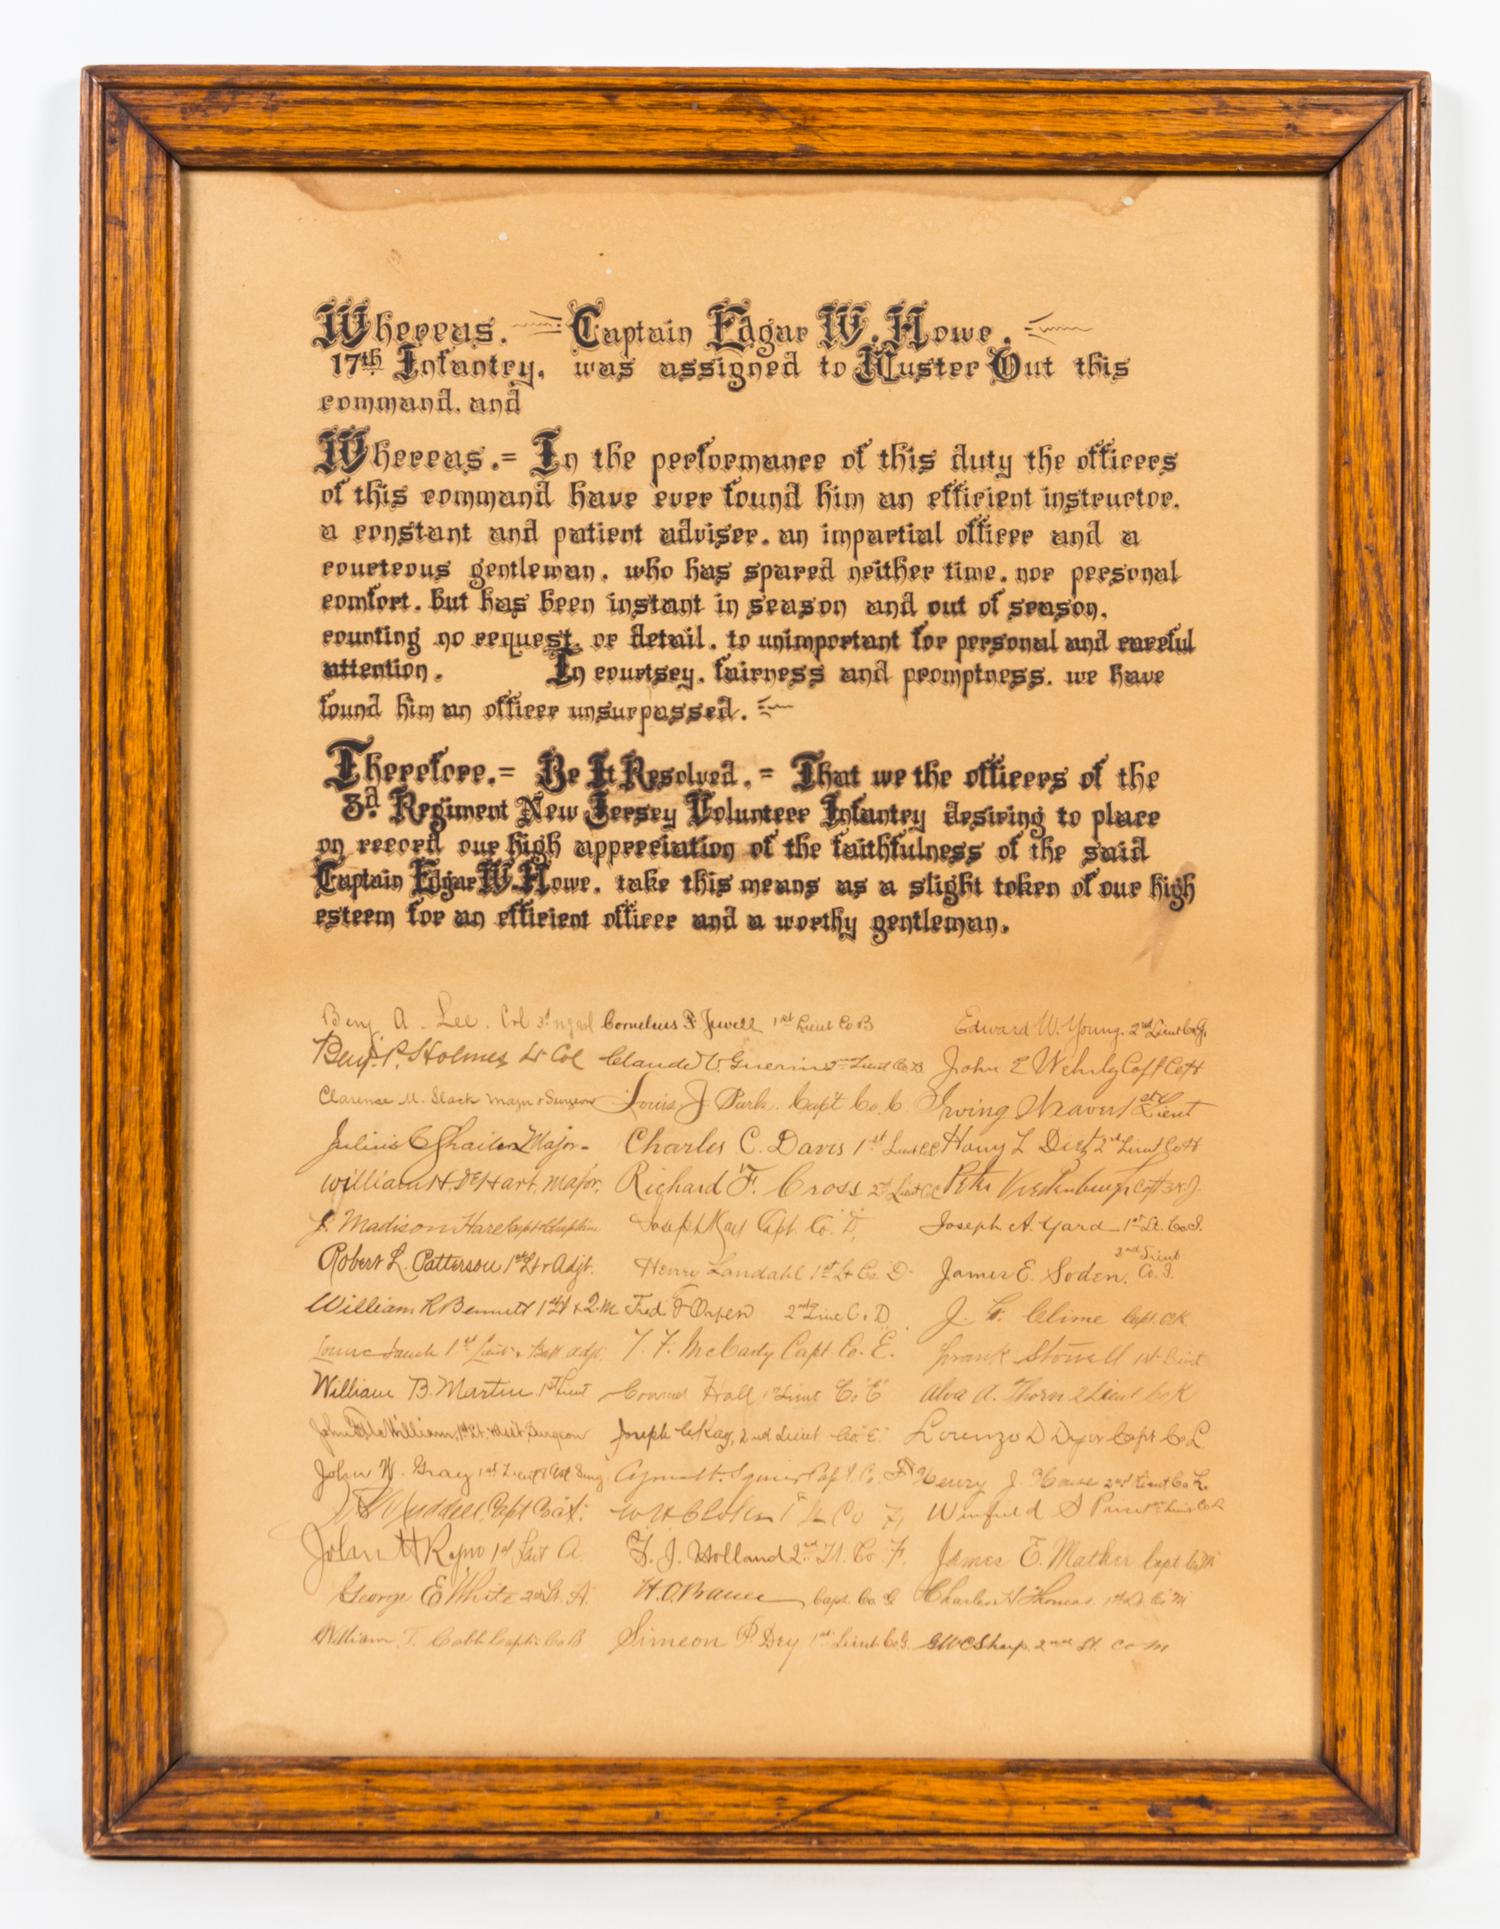 Whereas. Captain Edgar W. Howe.
17th Infantry. was assigned to Muster Out this
command. and
Whereas.= In the performance of this duty the officers
of this command have ever found him an efficient instructor.
a constant and patient adviser. an impartial officer and a
courteous gentleman. who has spared neither time. nor personal
comfort. but has been instant in season and out of season.
counting no request. or detail. to unimportant for personal and careful
attention. In courtsey. fairness and promptness. we have
found him an officer unsurpassed.
Therefore.= Be It Resolved.= That we the officers of the
3d. Regiment New Jersey Volunteer Infantry desiring to place
on record our high appreciation of the faithfulness of the said
Captain Edgar W. Howe. take this means as a slight token of our high
esteem for an efficient officer and a worthy gentleman.
Benj A. Lee. Col 3d
Benj. P. Holmes Lt Col
Clarence M. Slack Major & Surgeon
Julius C Shailer Major-
William H. DeHart, Major.
J. Madison Hare Capt & Chaplain
Robert L. Patterson 1st Lt & Adjt.
William R Bennett 1st Lt & Q.M
1st Lieut & Batt Adjt.
William B. Martin 1st Lieut
John 1st Lt. & Asst. Surgeon
John W. Gray 1st Lieut & Ast Surg.
Capt Co A.
John H 1st Leut A
George E White 2nd Lt. A.
William T. Cobb Capt. Co B
Cornelius P. Jewell 1st Lieut Co B
Claude V. Guerin 2nd Lieut Co. B
Louis J Capt Co. C.
Charles C. Davis 1st Lieut Co C
Richard F. Cross 2d Lieut Co C
Joseph Kay Capt. Co. D,
Henry Landahl 1st Lt Co. D.
Fred 2nd Lieut Co. D
T. F. McCarty Capt. Co. E.
Conrad Hall 1st Lieut Co. E
Joseph McKay, 2nd Lieut Co. E.
Squier Capt. Co. F
1st Lt Co F,
F. J. Holland 2nd Lt. Co. F.
H. O. Capt. Co. G
Simeon P. Dey 1st Lieut Co. G.
Edward W. Young. 2nd Lieut Co G.
John E Wehrly Capt Co H
Irving Weaver 1st Lieut
Harry L 2nd Lieut Co H
Peter Vredenburgh Capt
Joseph A. Yard 1st Lt. Co. I.
James E. Soden. 2nd Lieut Co. I.
J. Clime Capt. Co K
Frank Stowell 1st Lieut
Alva A. Thorn 2 Lieut Co K
Lorenzo D Dyer Capt Co L
Henry J. House 2nd Lieut Co L.
Winfield S Price
James E. Mather Capt Co M
Charles H Thomas. 1st Lt. Co M
GWC Sharp. 2nd Lt. Co M